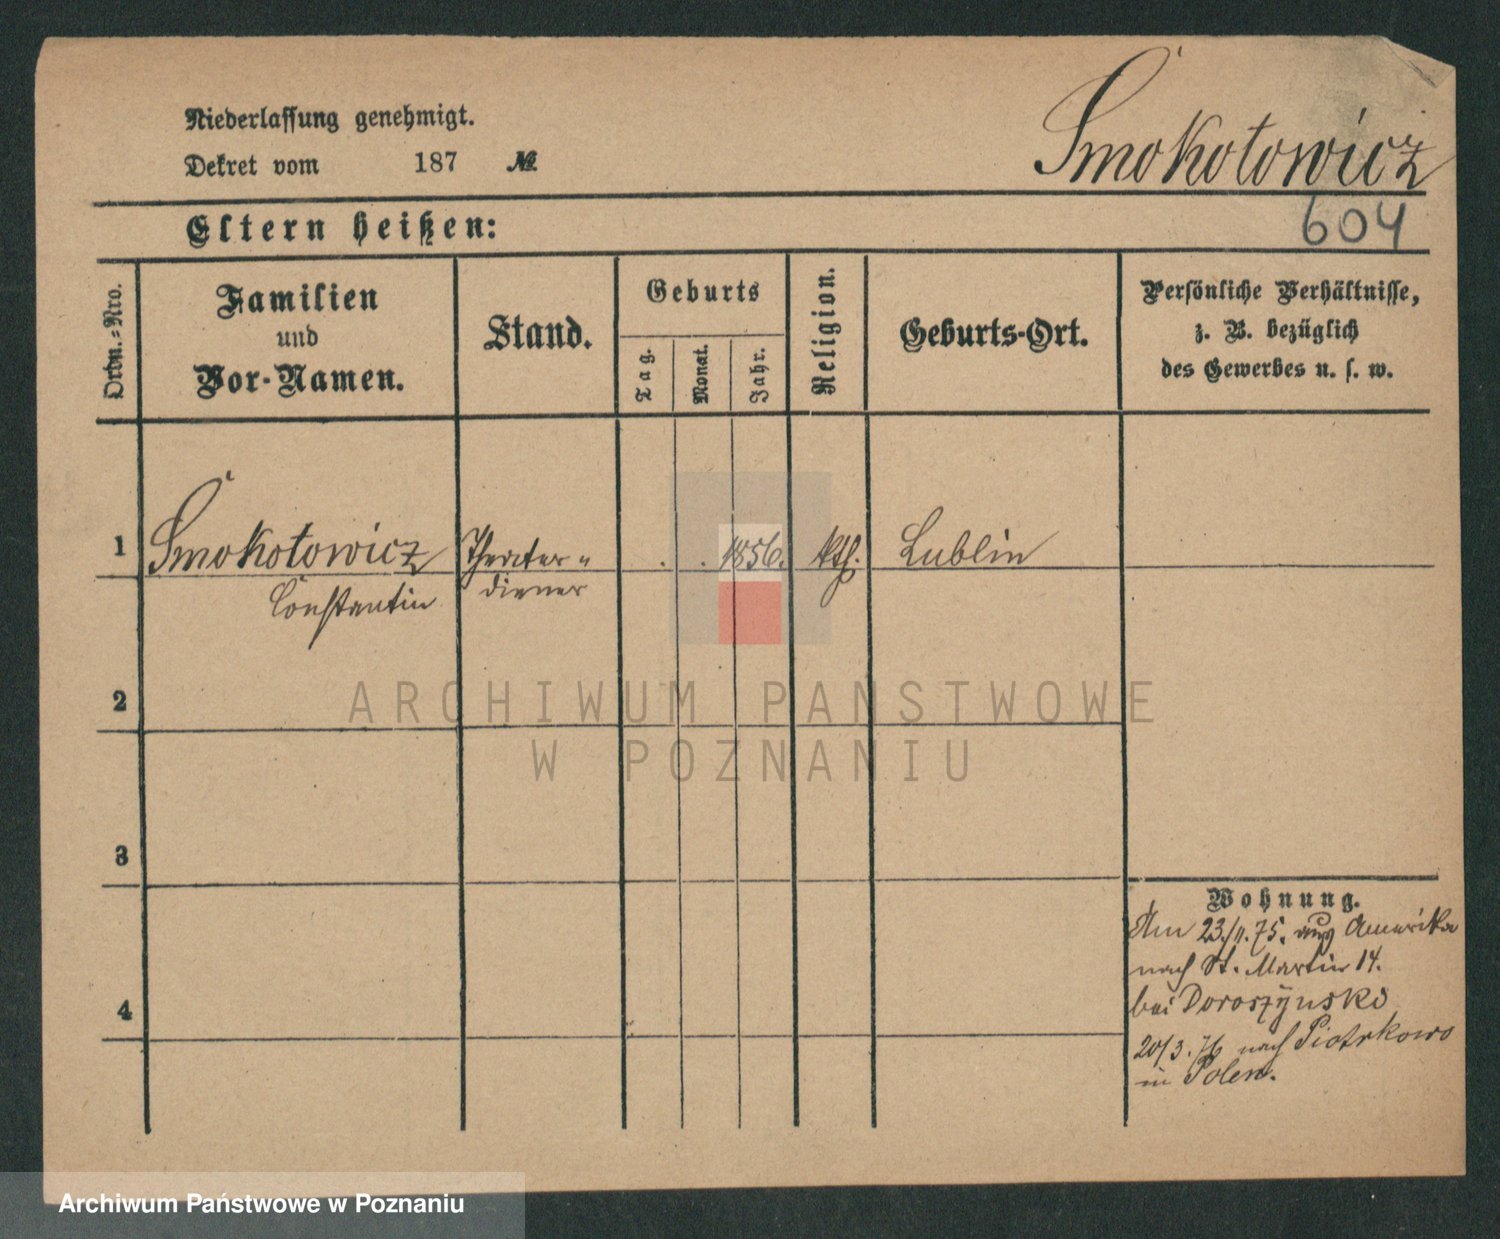 Niederlassung genehmigt.
Dekret vom 187 №
Smokotowicz
604
Eltern heißen:
Ordn.-Nro.
Familien
und
Vor-Namen.
Stand.
Geburts
Tag.
Monat.
Jahr.
Religion.
Geburts-Ort.
Persönliche Verhältnisse,
z. B. bezüglich
des Gewerbes u. s. w.
1 Smokotowicz Theater- . . 1856. kth. Lublin
Constantin diener
2
3
4
Wohnung.
Am 23./11.75. aus Amerika
nach St. Martin 14.
bei Doroszynski
20/3.76 nach Piotrkowo
in Polen.
ARCHIWUM PAŃSTWOWE
W POZNANIU
Archiwum Państwowe w Poznaniu